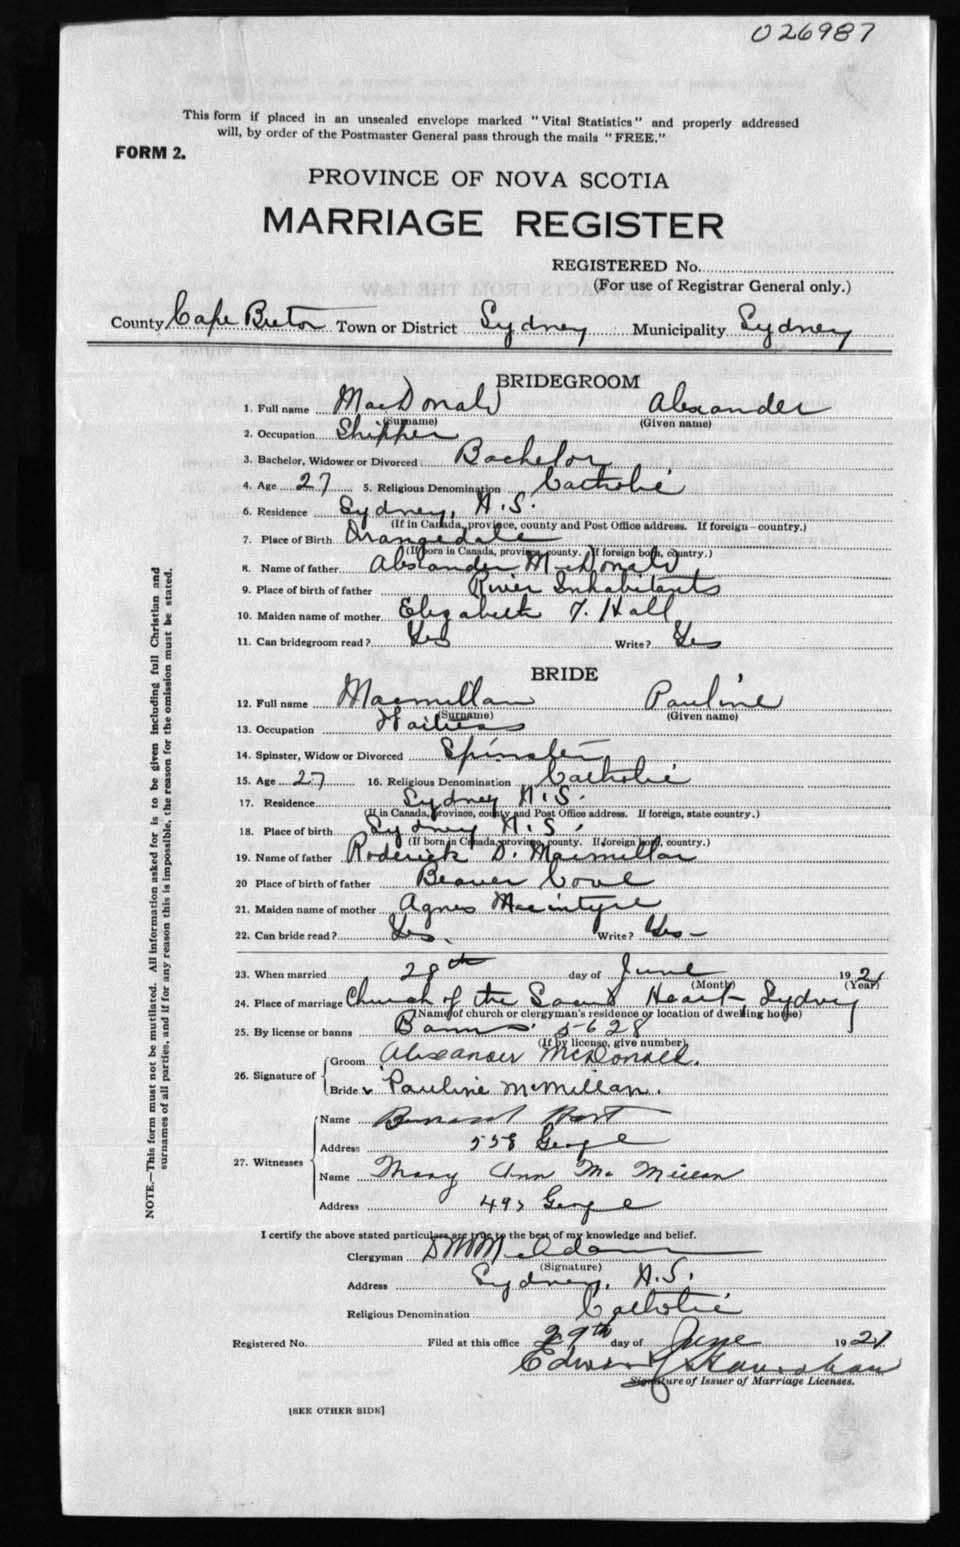 026987
This form if placed in an unsealed envelope marked "Vital Statistics" and properly addressed
will, by order of the Postmaster General pass through the mails "FREE."
FORM 2.
PROVINCE OF NOVA SCOTIA
MARRIAGE REGISTER
REGISTERED No.
(For use of Registrar General only.)
County Cape Breton Town or District Sydney Municipality Sydney
BRIDEGROOM
1. Full name MacDonald Alexander
(Surname) (Given name)
2. Occupation Shipper
3. Bachelor, Widower or Divorced Bachelor
4. Age 27 5. Religious Denomination Catholic
6. Residence Sydney, N.S.
(If in Canada, province, county and Post Office address. If foreign—country.)
7. Place of Birth Orangedale
(If born in Canada, province, county. If foreign born, country.)
8. Name of father Alexander McDonald
9. Place of birth of father River Inhabitants
10. Maiden name of mother Elizabeth F. Hall
11. Can bridegroom read? Yes Write? Yes
BRIDE
12. Full name Macmillan Pauline
(Surname) (Given name)
13. Occupation Waitress
14. Spinster, Widow or Divorced Spinster
15. Age 27 16. Religious Denomination Catholic
17. Residence Sydney N.S.
(If in Canada, province, county and Post Office address. If foreign, state country.)
18. Place of birth Sydney N.S.
(If born in Canada, province, county. If foreign born, country.)
19. Name of father Roderick D. Macmillan
20 Place of birth of father Beaver Cove
21. Maiden name of mother Agnes Macintyre
22. Can bride read? Yes Write? Yes
23. When married 28th day of June 1921
(Month) (Year)
24. Place of marriage Church of the Sacred Heart, Sydney
(Name of church or clergyman's residence or location of dwelling house)
25. By license or banns Banns 5628
(If by license, give number)
26. Signature of
Groom Alexander McDonald.
Bride Pauline McMillan.
27. Witnesses
Name Hart
Address 558 George
Name Mary Ann McMillan
Address 495 George
I certify the above stated particulars are true to the best of my knowledge and belief.
Clergyman
(Signature)
Address Sydney, N.S.
Religious Denomination Catholic
Registered No. Filed at this office 29th day of June 1921
Signature of Issuer of Marriage Licenses.
[SEE OTHER SIDE]
NOTE.—This form must not be mutilated. All information asked for is to be given including full Christian and
surnames of all parties, and if for any reason this is impossible, the reason for the omission must be stated.